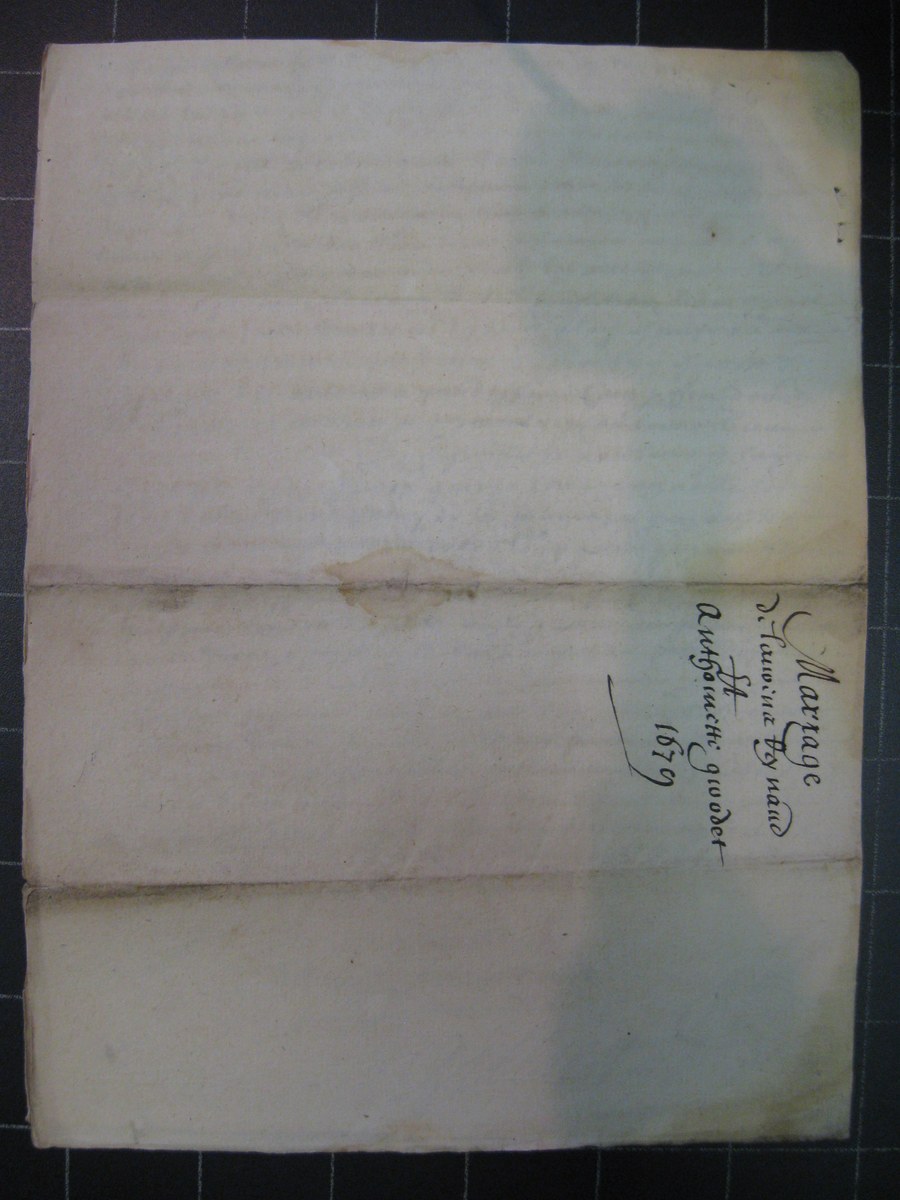 Marrage
de Lauvina Reynaud
Et
Anthoinette givodet
1679